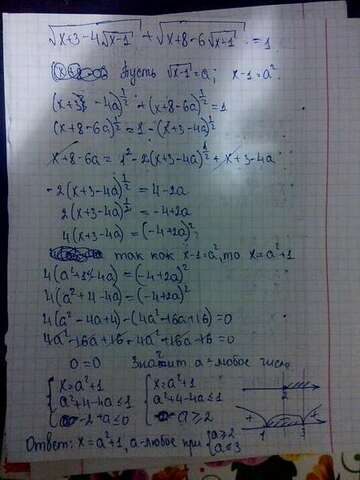 √(x+3-4√(x-1)) + √(x+8-6√(x-1)) = 1.
Пусть √(x-1) = a; x-1 = a²
(x+3 - 4a)^½ + (x+8-6a)^½ = 1
(x+8-6a)^½ = 1 - (x+3-4a)^½
x+8-6a = 1² - 2(x+3-4a)^½ + x+3-4a
-2(x+3-4a)^½ = 4-2a
2(x+3-4a)^½ = -4+2a
4(x+3-4a) = (-4+2a)²;
так как x-1=a², то x=a²+1
4(a²+1+3-4a) = (-4+2a)²
4(a²+4-4a) = (-4+2a)²
4(a²-4a+4) - (4a²-16a+16) = 0
4a²-16a+16-4a²+16a-16 = 0
0=0 Значит a-любое число
{ x=a²+1 { x=a²+1
a²+4-4a≤1 a²+4-4a≤1
-2+a≤0 a≥2
2
+ - +
1 3
Ответ: x=a²+1, a-любое при { a≥2
a≤3